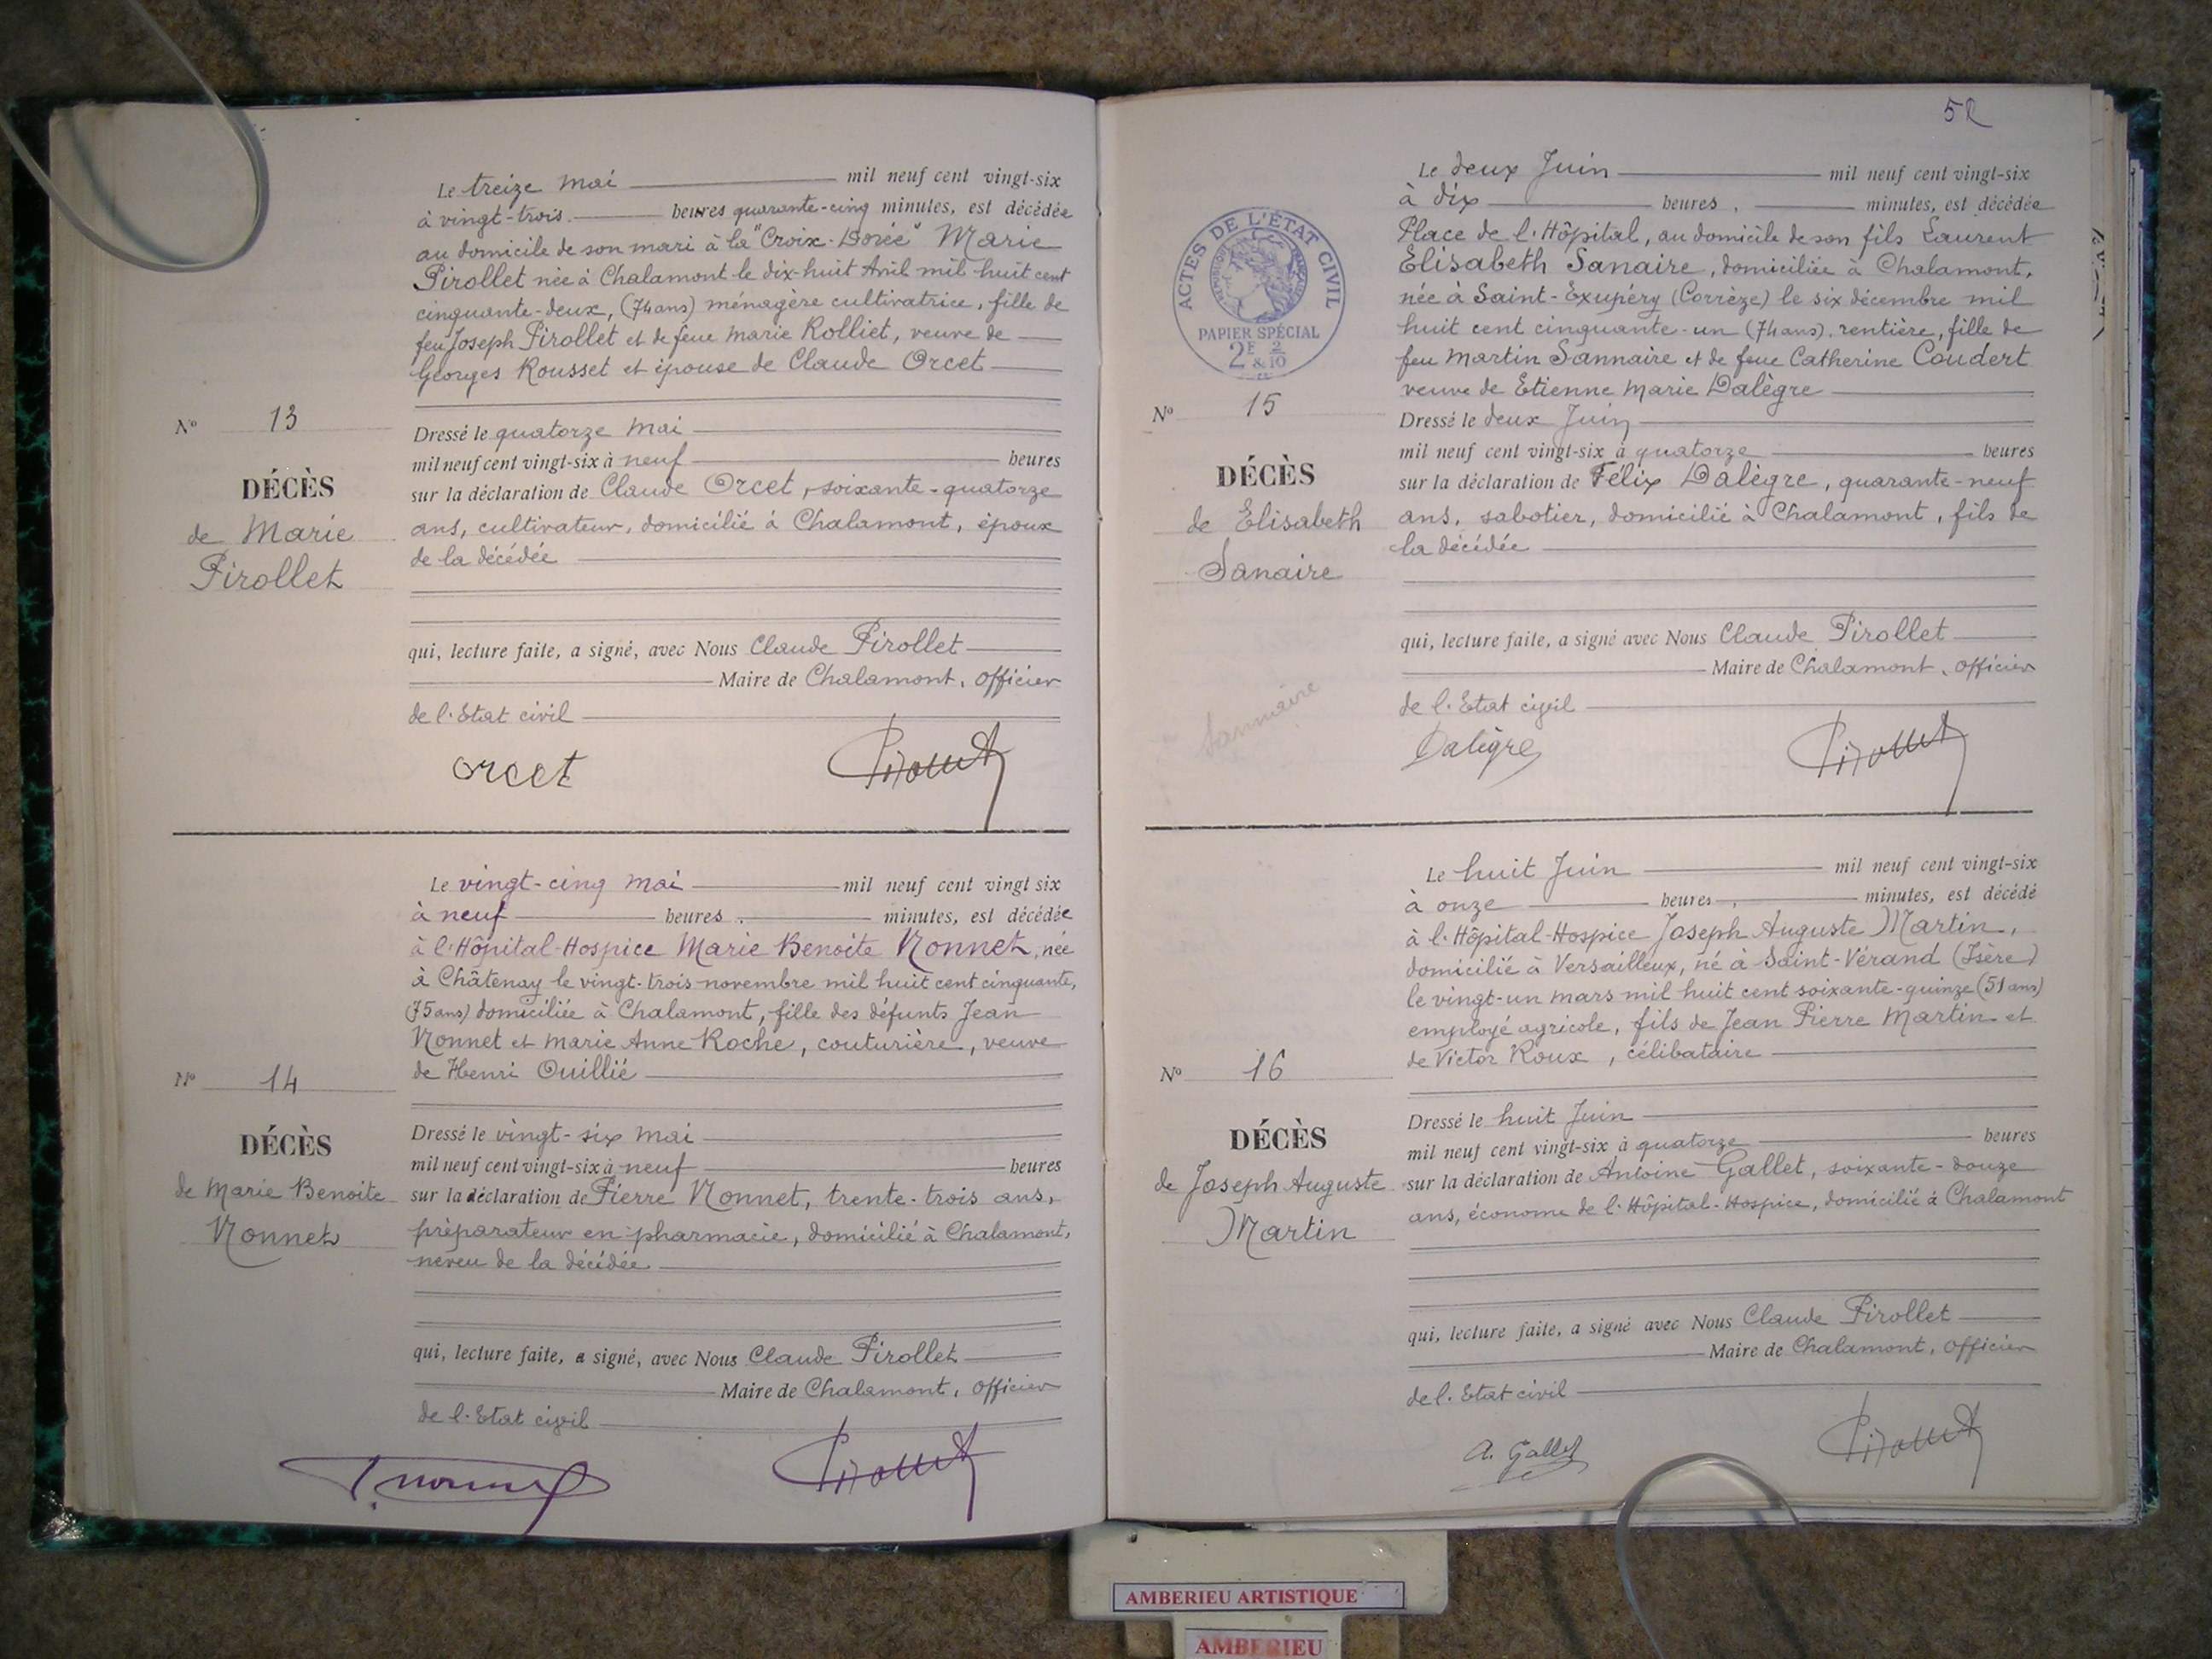 Le treize mai mil neuf cent vingt-six
à vingt-trois heures quarante-cinq minutes, est décédée
au domicile de son mari à la "Croix-Dorée" Marie
Pirollet née à Chalamont le dix-huit Avril mil huit cent
cinquante-deux, (74 ans) ménagère cultivatrice, fille de
feu Joseph Pirollet et de feue Marie Rolliet, veuve de
Georges Rousset et épouse de Claude Orcet
N° 13
DÉCÈS
de Marie
Pirollet
Dressé le quatorze mai
mil neuf cent vingt-six à neuf heures
sur la déclaration de Claude Orcet, soixante-quatorze
ans, cultivateur, domicilié à Chalamont, époux
de la décédée
qui, lecture faite, a signé, avec Nous Claude Pirollet
Maire de Chalamont, officier
de l'Etat civil
Orcet Pirollet
Le vingt-cinq mai mil neuf cent vingt six
à neuf heures minutes, est décédée
à l'Hôpital-Hospice Marie Benoite Nonnet, née
à Châtenay le vingt-trois novembre mil huit cent cinquante,
(75 ans) domiciliée à Chalamont, fille des défunts Jean
Nonnet et Marie Anne Roche, couturière, veuve
de Henri Ouillié
N° 14
DÉCÈS
de Marie Benoite
Nonnet
Dressé le vingt-six mai
mil neuf cent vingt-six à neuf heures
sur la déclaration de Pierre Nonnet, trente-trois ans,
préparateur en pharmacie, domicilié à Chalamont,
neveu de la décédée
qui, lecture faite, a signé, avec Nous Claude Pirollet
Maire de Chalamont, officier
de l'Etat civil
P. Nonnet Pirollet
52
ACTES DE L'ÉTAT CIVIL
RÉPUBLIQUE FRANÇAISE
PAPIER SPÉCIAL
2F & 2/10
Le deux Juin mil neuf cent vingt-six
à dix heures, minutes, est décédée
Place de l'Hôpital, au domicile de son fils Laurent
Elisabeth Sanaire, domiciliée à Chalamont,
née à Saint-Exupéry (Corrèze) le six décembre mil
huit cent cinquante-un (74 ans), rentière, fille de
feu Martin Sannaire et de feue Catherine Coudert
veuve de Etienne Marie Dalègre
N° 15
DÉCÈS
de Elisabeth
Sanaire
Sannaire
Dressé le deux Juin
mil neuf cent vingt-six à quatorze heures
sur la déclaration de Félix Dalègre, quarante-neuf
ans, sabotier, domicilié à Chalamont, fils de
la décédée
qui, lecture faite, a signé avec Nous Claude Pirollet
Maire de Chalamont, officier
de l'Etat civil
Dalègre Pirollet
Le huit Juin mil neuf cent vingt-six
à onze heures, minutes, est décédé
à l'Hôpital-Hospice Joseph Auguste Martin,
domicilié à Versailleux, né à Saint-Vérand (Isère)
le vingt-un mars mil huit cent soixante-quinze (51 ans)
employé agricole, fils de Jean Pierre Martin et
de Victor Roux, célibataire
N° 16
DÉCÈS
de Joseph Auguste
Martin
Dressé le huit Juin
mil neuf cent vingt-six à quatorze heures
sur la déclaration de Antoine Gallet, soixante-douze
ans, économe de l'Hôpital-Hospice, domicilié à Chalamont
qui, lecture faite, a signé avec Nous Claude Pirollet
Maire de Chalamont, officier
de l'Etat civil
A. Gallet Pirollet
AMBERIEU ARTISTIQUE
AMBERIEU